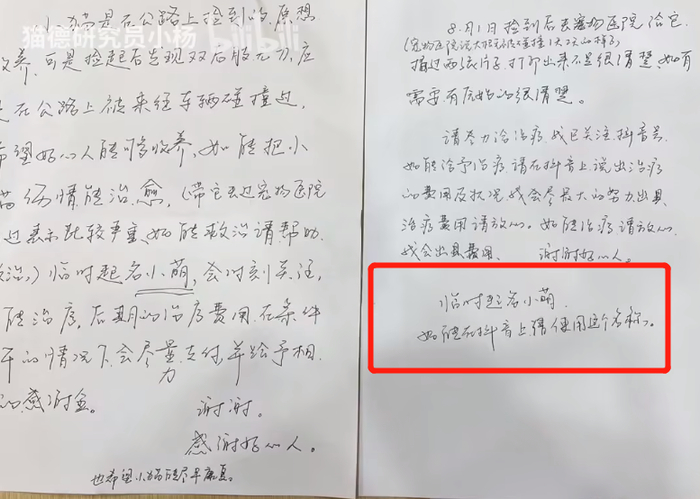 猫德研究员小杨 bilibili
小猫是在公路上捡到的.原想
收养.可是捡起后发现双后肢无力.应
是在公路上被来往车辆碰撞过.
希望好心人能够收养.如能把小
猫伤情能治愈.(带它去过宠物医院
过表示比较严重.如能救治请帮助.
救治.)临时起名小萌,会时刻关注,
能治疗,后期的治疗费用.在条件
下的情况下,会尽量力支付,并给予相
的感谢金。
谢谢.
感谢好心人。
也希望小猫能尽早康复。
8月1日捡到后去宠物医院给它
拍过两张片子.打印出来不是很清楚.如有
需要有原始的很清楚。
请尽力给治疗.我已关注.抖音号
如能给予治疗.请在抖音上说出治疗
的费用及状况.我会尽最大的努力出具
治疗费用请放心.如能治疗请放心.
我会出具费用. 谢谢好心人。
临时起名小萌.
如能在抖音上请使用这个名称。